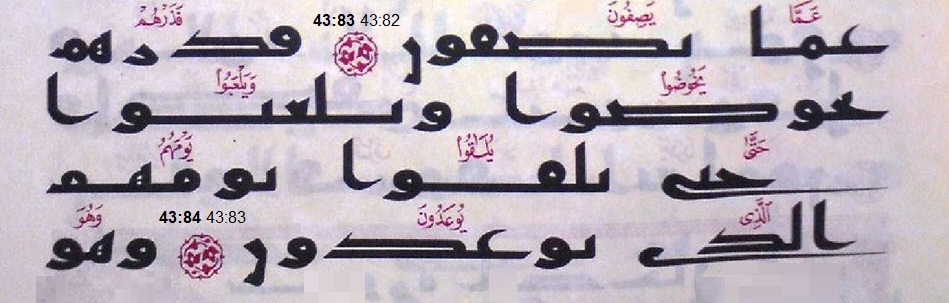 عَمَّا يَصِفُونَ 43:82 43:83 فَذَرْهُمْ
عما يصفون فذرهم
يَخُوضُوا وَيَلْعَبُوا
يخوضوا ويلعبوا
حَتَّىٰ يُلَـٰقُوا يَوْمَهُمُ
حتى يلقوا يومهم
ٱلَّذِى يُوعَدُونَ 43:83 43:84 وَهُوَ
الذى يوعدون وهو